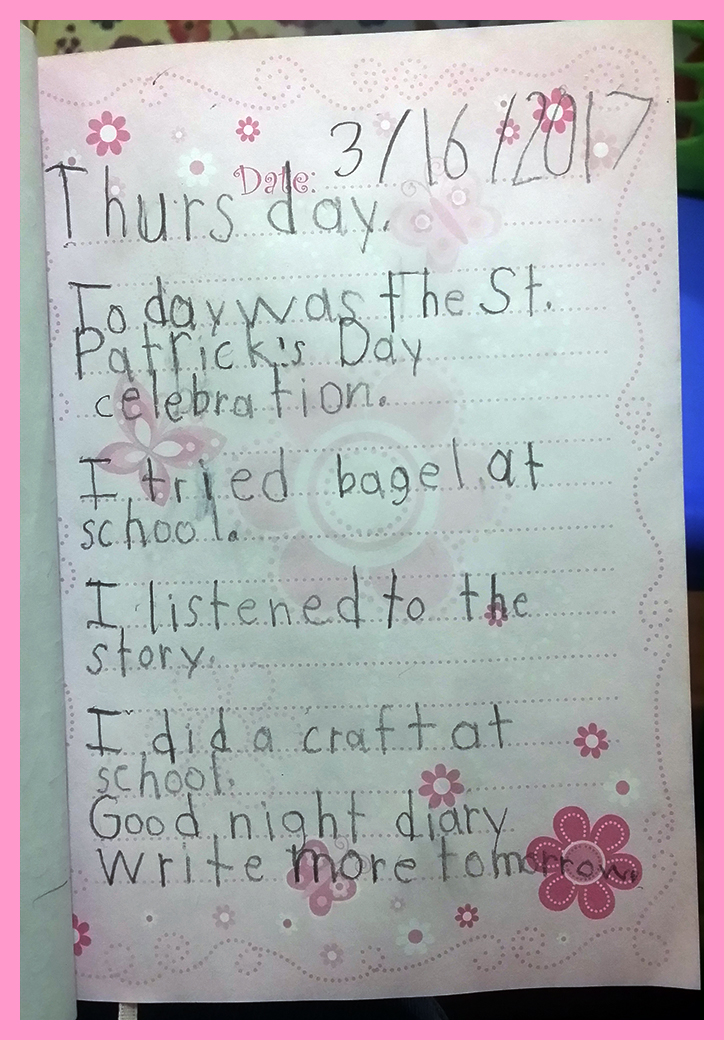 Date: 3/16/2017
Thursday.
Today was the St.
Patrick's Day
celebration.
I tried bagel at
school.
I listened to the
story.
I did a craft at
school.
Good night diary
write more tomorrow.